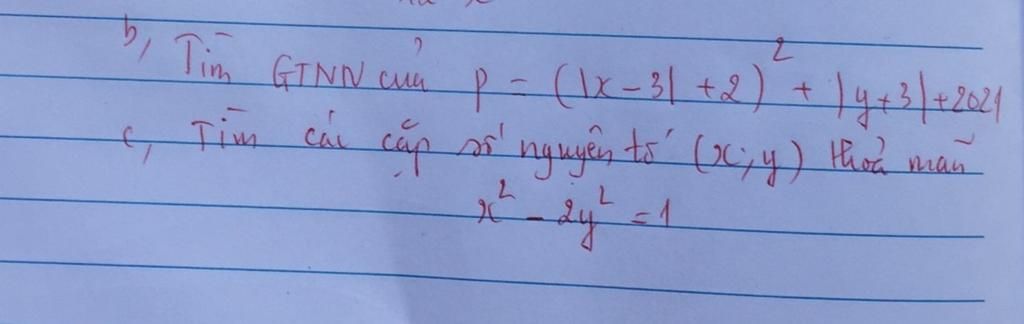 b, Tìm GTNN của P = (|x - 3| + 2)² + |y + 3| + 2021
c, Tìm các cặp số nguyên tố (x; y) thoả mãn
x² - 2y² = 1